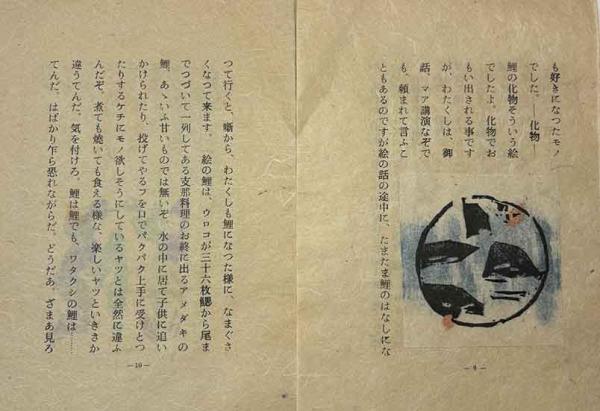 も好きになつたモノ
でした。――化物
鯉の化物そういう絵
でしたよ。化物でお
もい出される事です
が、わたくしは、御
話、マア講演なぞで
も、頼まれて言ふこ
ともあるのですが絵の話の途中に、たまたま鯉のはなしにな
—9—
つて行くと、噺から、わたくしも鯉になつた様に、なまぐさ
くなつて来ます。絵の鯉は、ウロコが三十六枚鰓から尾ま
でつづいて一列してある支那料理のお終に出るアメダキの
鯉、あゝいふ甘いものでは無いぞ 水の中に居て子供に追い
かけられたり、投げてやるフを口でパクパク上手に受けとつ
たりするケチにモノ欲しそうにしているヤツとは全然に違ふ
んだぞ。煮ても焼いても食える様な、楽しいヤツといきさか
違うてんだ。気を付けろ。鯉は鯉でも、ワタクシの鯉は……
てんだ。はばかり乍ら恐れながらだ。どうだあ。ざまあ見ろ
—10—